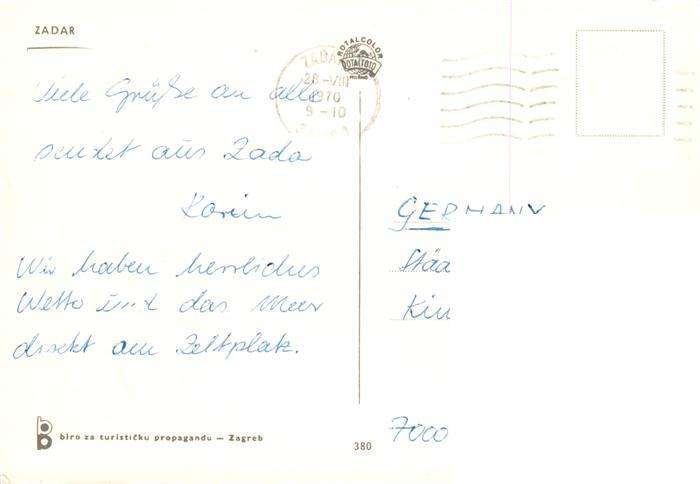 ZADAR
ROTALCOLOR
ROTALFOTO
MILANO
ZADAR
28-VIII
1970
9-10
Viele Grüße an alle
sendet aus Zada
Karin
Wir haben herrliches
Wetter und das Meer
direkt am Zeltplatz.
GERMANY
Stää
Kin
7000
biro za turističku propagandu — Zagreb
380